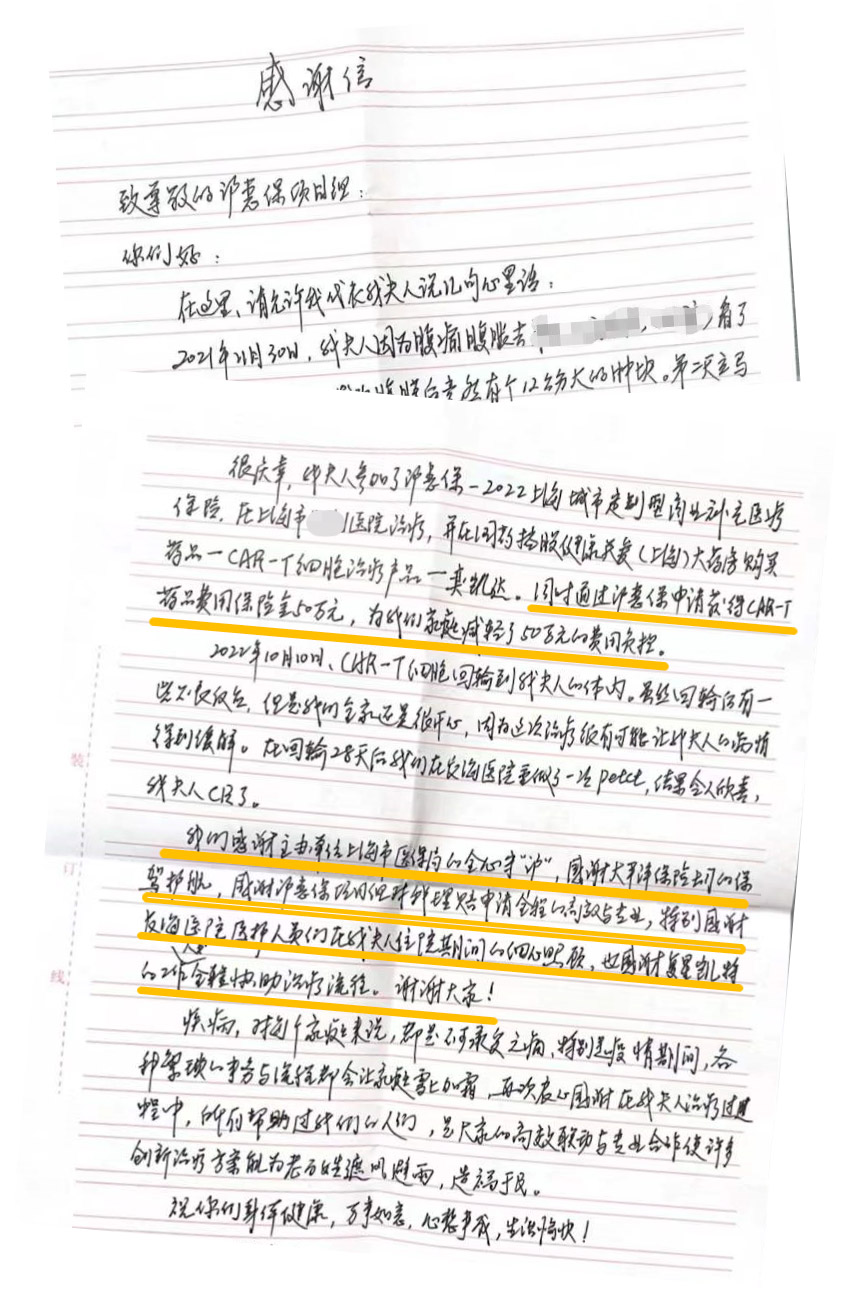 感谢信
致尊敬的沪惠保项目组：
你们好：
在这里、请允许我代表我夫人说几句心里话：
2021年11月30日，我夫人因为腹痛腹胀去
看了
后竟然有个12公分大的肿块。第二天立马
很庆幸，我夫人参加了沪惠保-2022上海城市定制型商业补充医疗
保险，在上海市 医院治疗，并在国药控股健康关爱(上海)大药房购买
药品-CAR-T细胞治疗产品-奕凯达。同时通过沪惠保申请获得CAR-T
药品费用保险金50万元，为我们家庭减轻了50万元的费用负担。
2022年10月10日、CAR-T细胞回输到我夫人的体内。虽然回输后有一
些不良反应，但是我们全家还是很开心，因为这次治疗很有可能让我夫人的病情
得到缓解。在回输28天后我们在长海医院重做了一次petct，结果令人欣喜，
我夫人CR了。
我们感谢主办单位上海市医保局的全心守"沪"，感谢太平洋保险公司的保
驾护航，感谢沪惠保 理赔申请全程的高效与专业，特别感谢
长海医院医护人员们在我夫人住院期间的细心照顾，也感谢复星凯特
的工作人员全程协助治疗流程。谢谢大家！
疾病，对每个家庭来说，都是不可承受之痛、特别是疫情期间，各
种繁琐的事务与流程都会让家庭雪上加霜，再次衷心感谢在我夫人治疗过
程中，所有帮助过我们的人们，是大家的高效联动与专业合作使许多
创新治疗方案能为老百姓遮风避雨，造福于民。
祝你们身体健康，万事如意，心想事成，生活愉快！
装
订
线